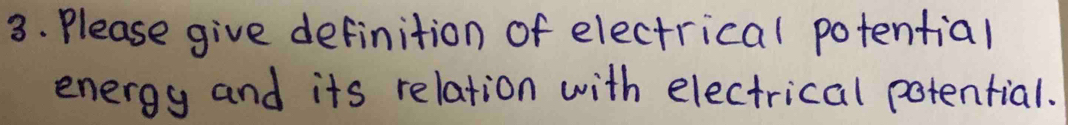 3. Please give definition of electrical potential
energy and its relation with electrical potential.